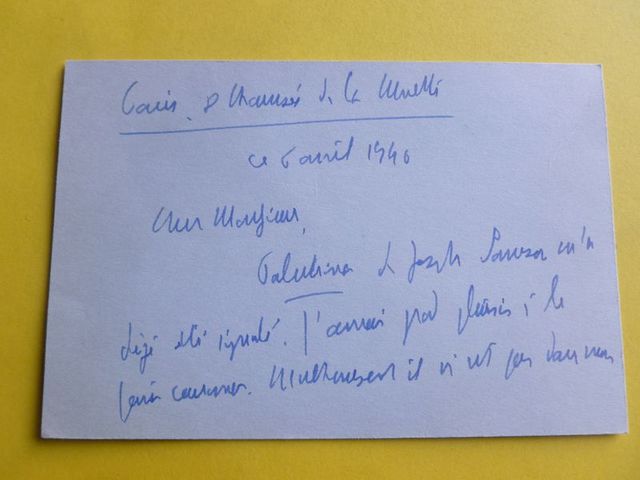 Paris. 8 Chaussée de la Muette
ce 6 avril 1940
Cher Monsieur,
de Joseph m'a
déjà été signalé. J'aurais grand plaisir à le
faire couronner. Malheureusement il n'est pas dans nos